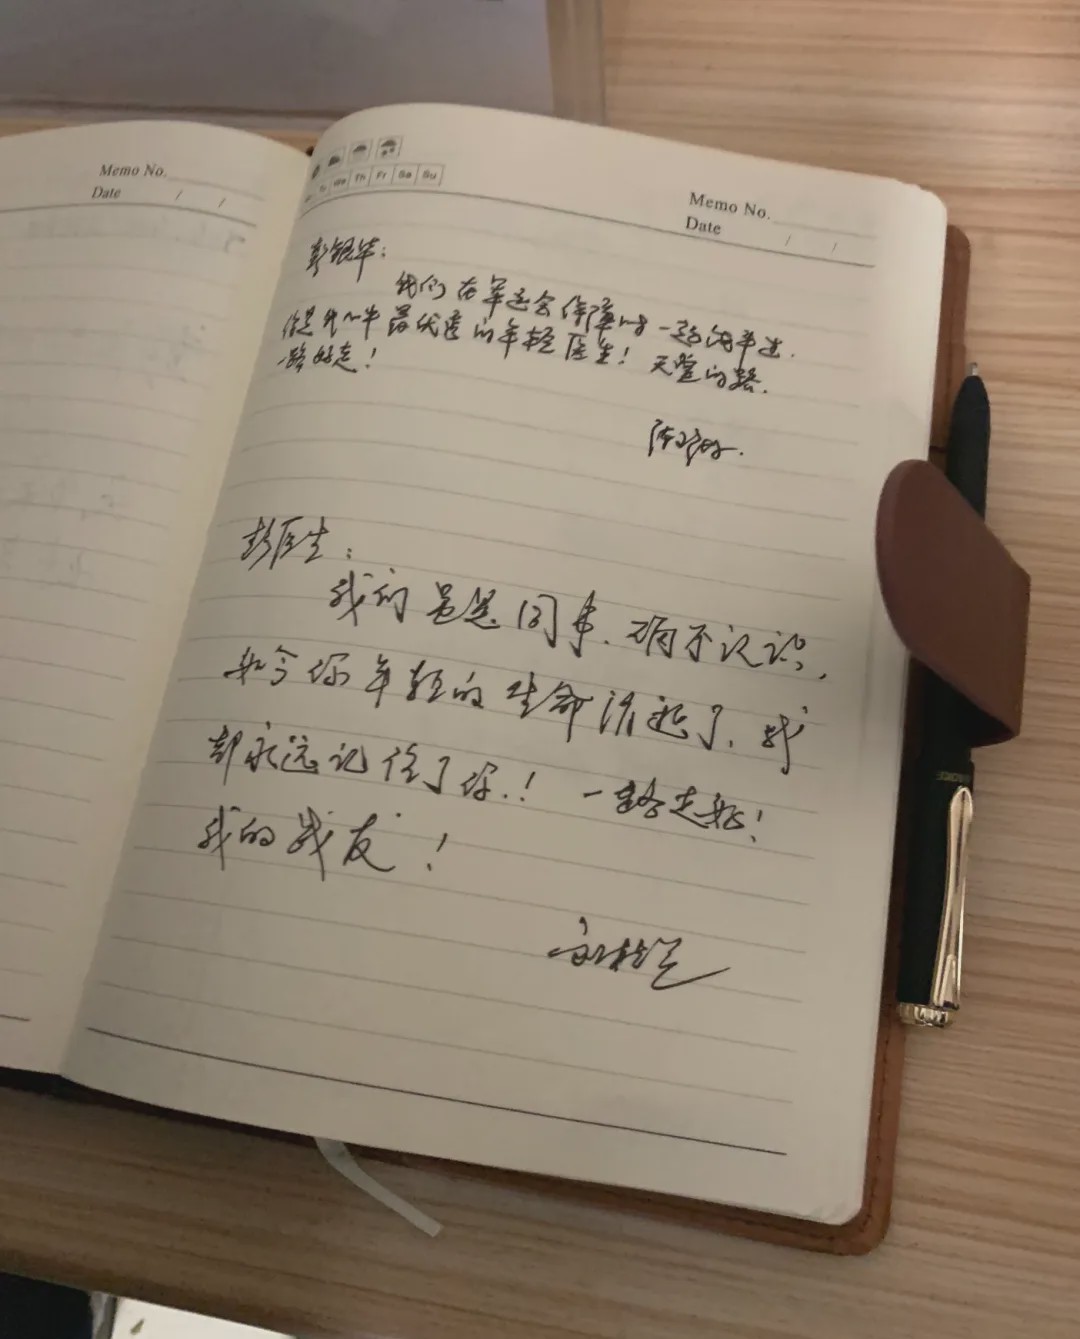 Memo No.
Date / /
We Th Fr Sa Su
Memo No.
Date / /
彭银华：
我们在军运会保障时一起
你是我心中最优秀的年轻医生！天堂的路.
一路好走！
彭医生：
我们虽是同事、确不认识,
如今你年轻的生命消逝了、我
却永远记住了你.！一路走好！
我的战友！